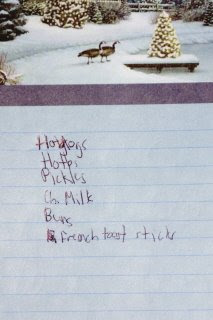 Hotdogs
Pickles
Ch. Milk
Buns
French toast sticks